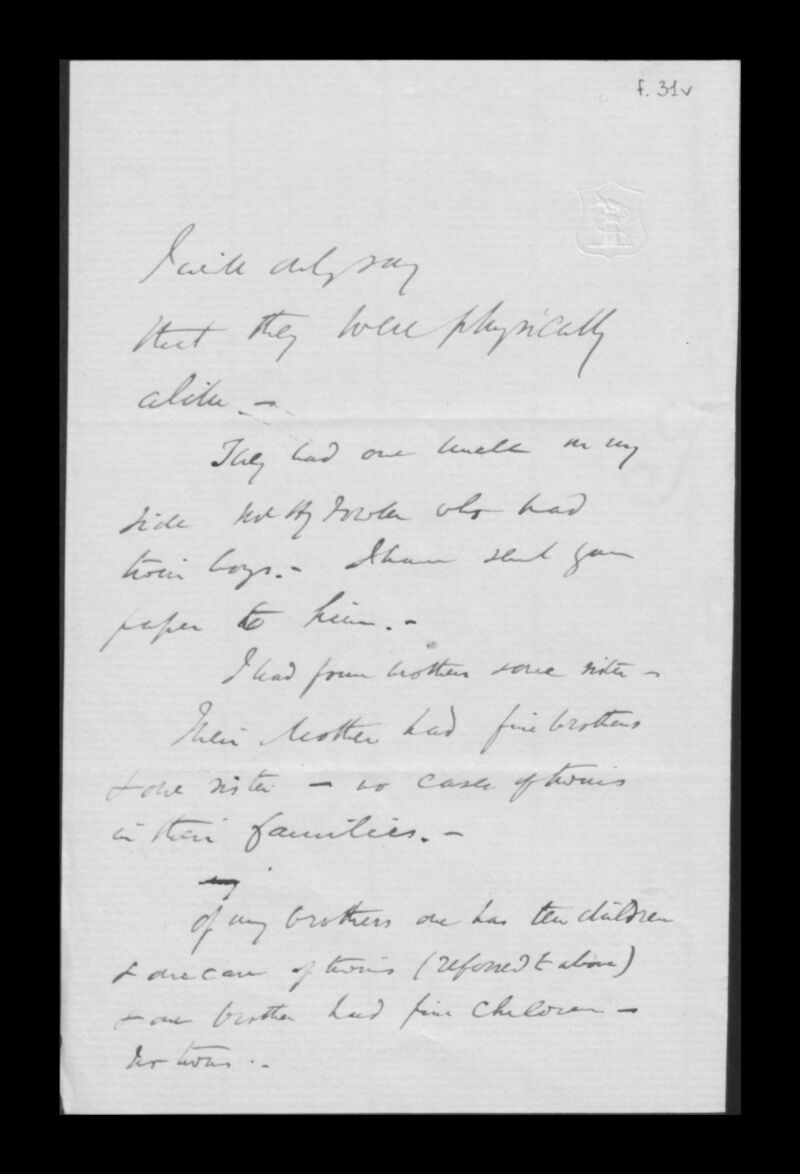 f. 31v
I will only say
that they were physically
alike. —
They had one uncle on my
side Fowler who had
twin boys. — I have sent your
paper to him. —
I had four brothers & one sister —
Their Mother had five brothers
& one sister — no case of twins
in their families. —
my
of my brothers one has ten children
& one case of twins (referred to above)
& one brother had five children —
No twins . —